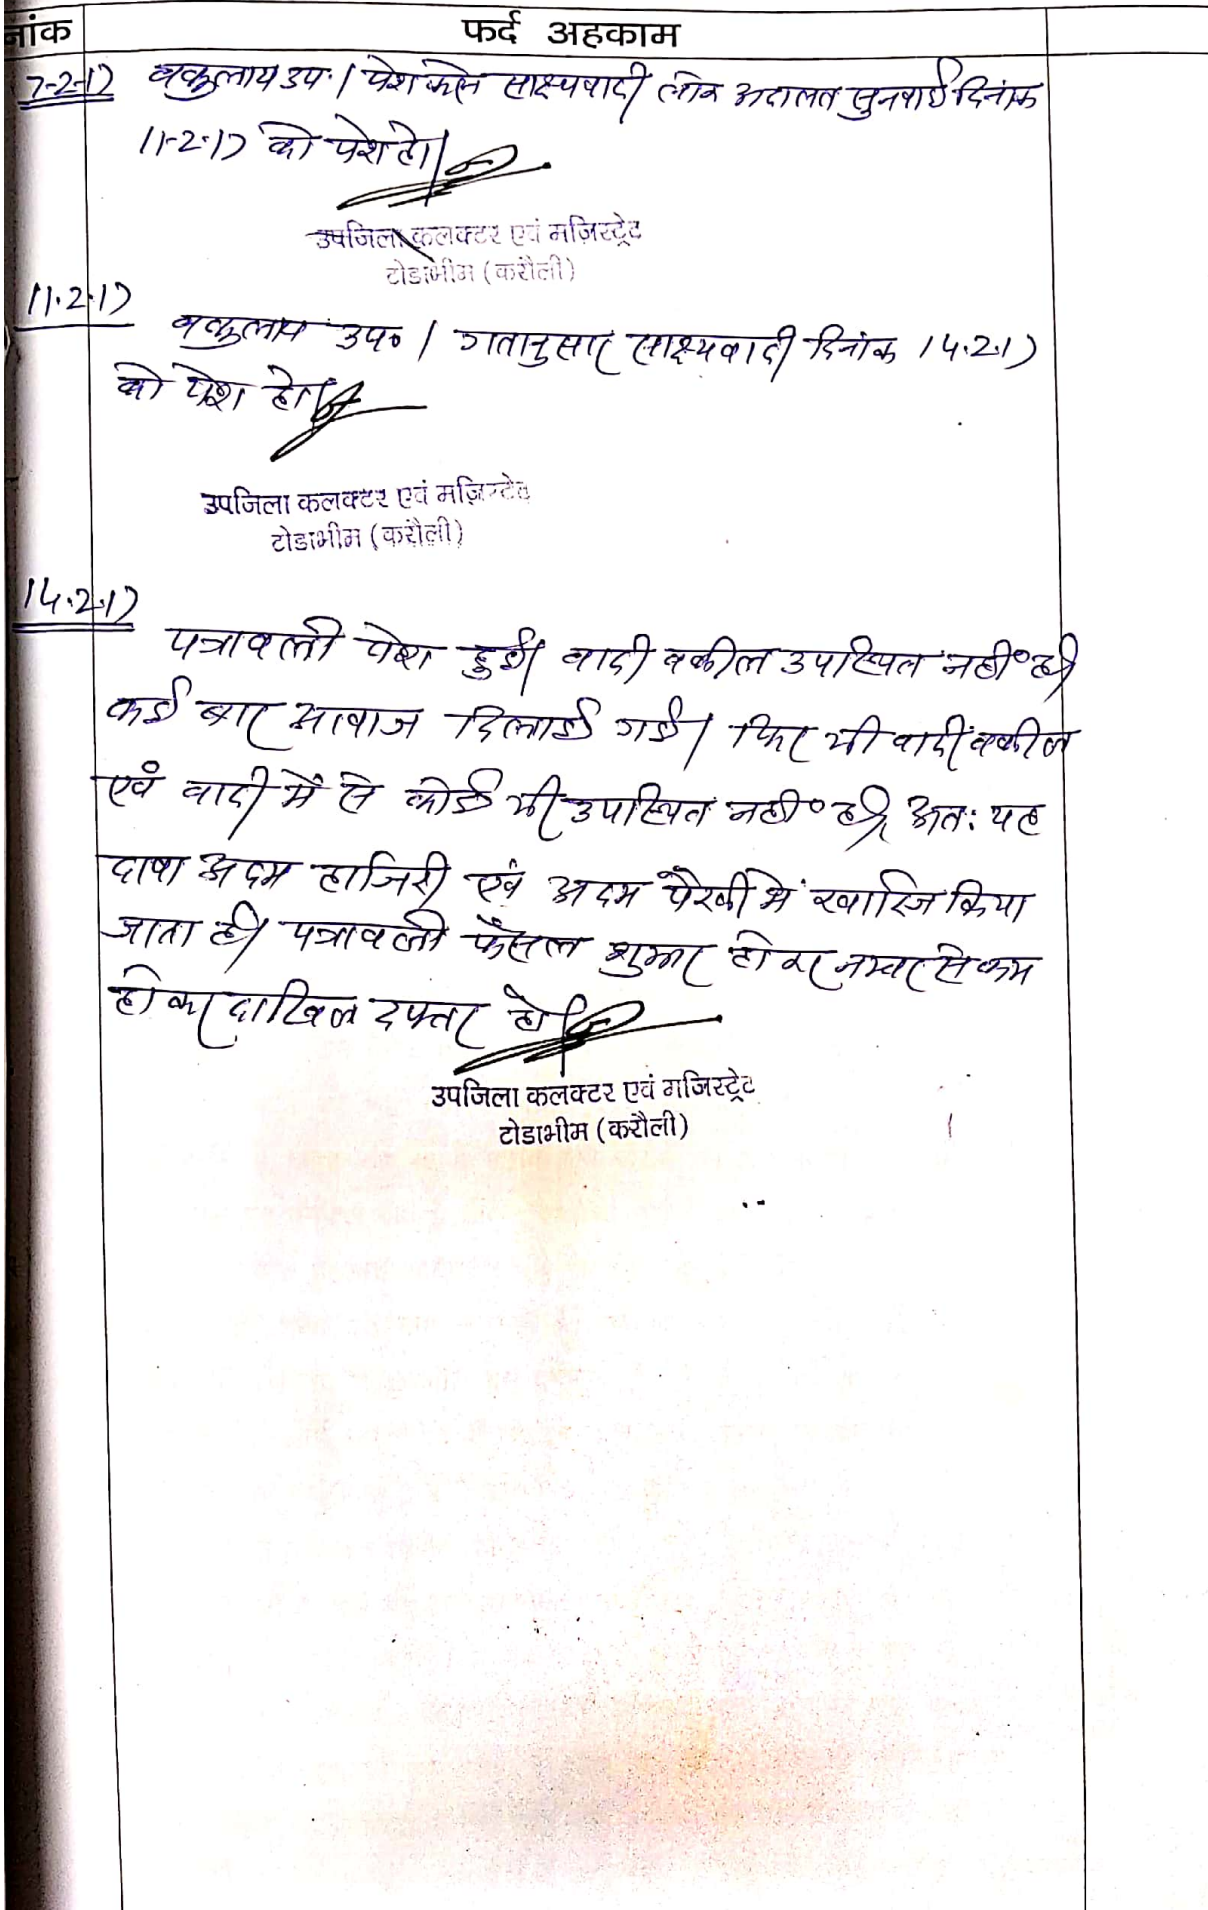 नांक फर्द अहकाम
7-2-17 वकुलाय उप. । पेश करने साक्ष्यवादी लोक अदालत सुनवाई दिनांक
11-2-17 को पेश हो।
उपजिला कलक्टर एवं मजिस्ट्रेट
टोडाभीम (करौली)
11.2.17
वकुलाय उप० । गतानुसार साक्ष्यवादी दिनांक 14.2.17
को पेश हो।
उपजिला कलक्टर एवं मजिस्ट्रेट
टोडाभीम (करौली)
14.2.17
पत्रावली पेश हुई। वादी वकील उपस्थित नहीं है।
कई बार आवाज दिलाई गई। फिर भी वादी वकील
एवं वादी में से कोई भी उपस्थित नहीं है। अत: यह
दावा अदम हाजिरी एवं अदम पैरवी में खारिज किया
जाता है। पत्रावली फैसल शुमार होकर नम्बर से कम
होकर दाखिल दफ्तर हो।
उपजिला कलक्टर एवं मजिस्ट्रेट
टोडाभीम (करौली)